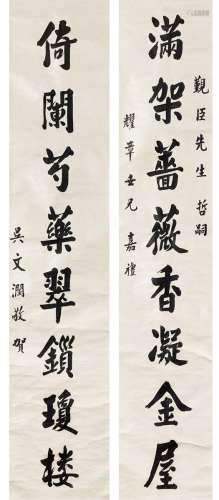 觐臣先生哲嗣
滿架薔薇香凝金屋
耀章世兄嘉禮
倚闌芍藥翠鎖瓊楼
吴文瀾敬賀